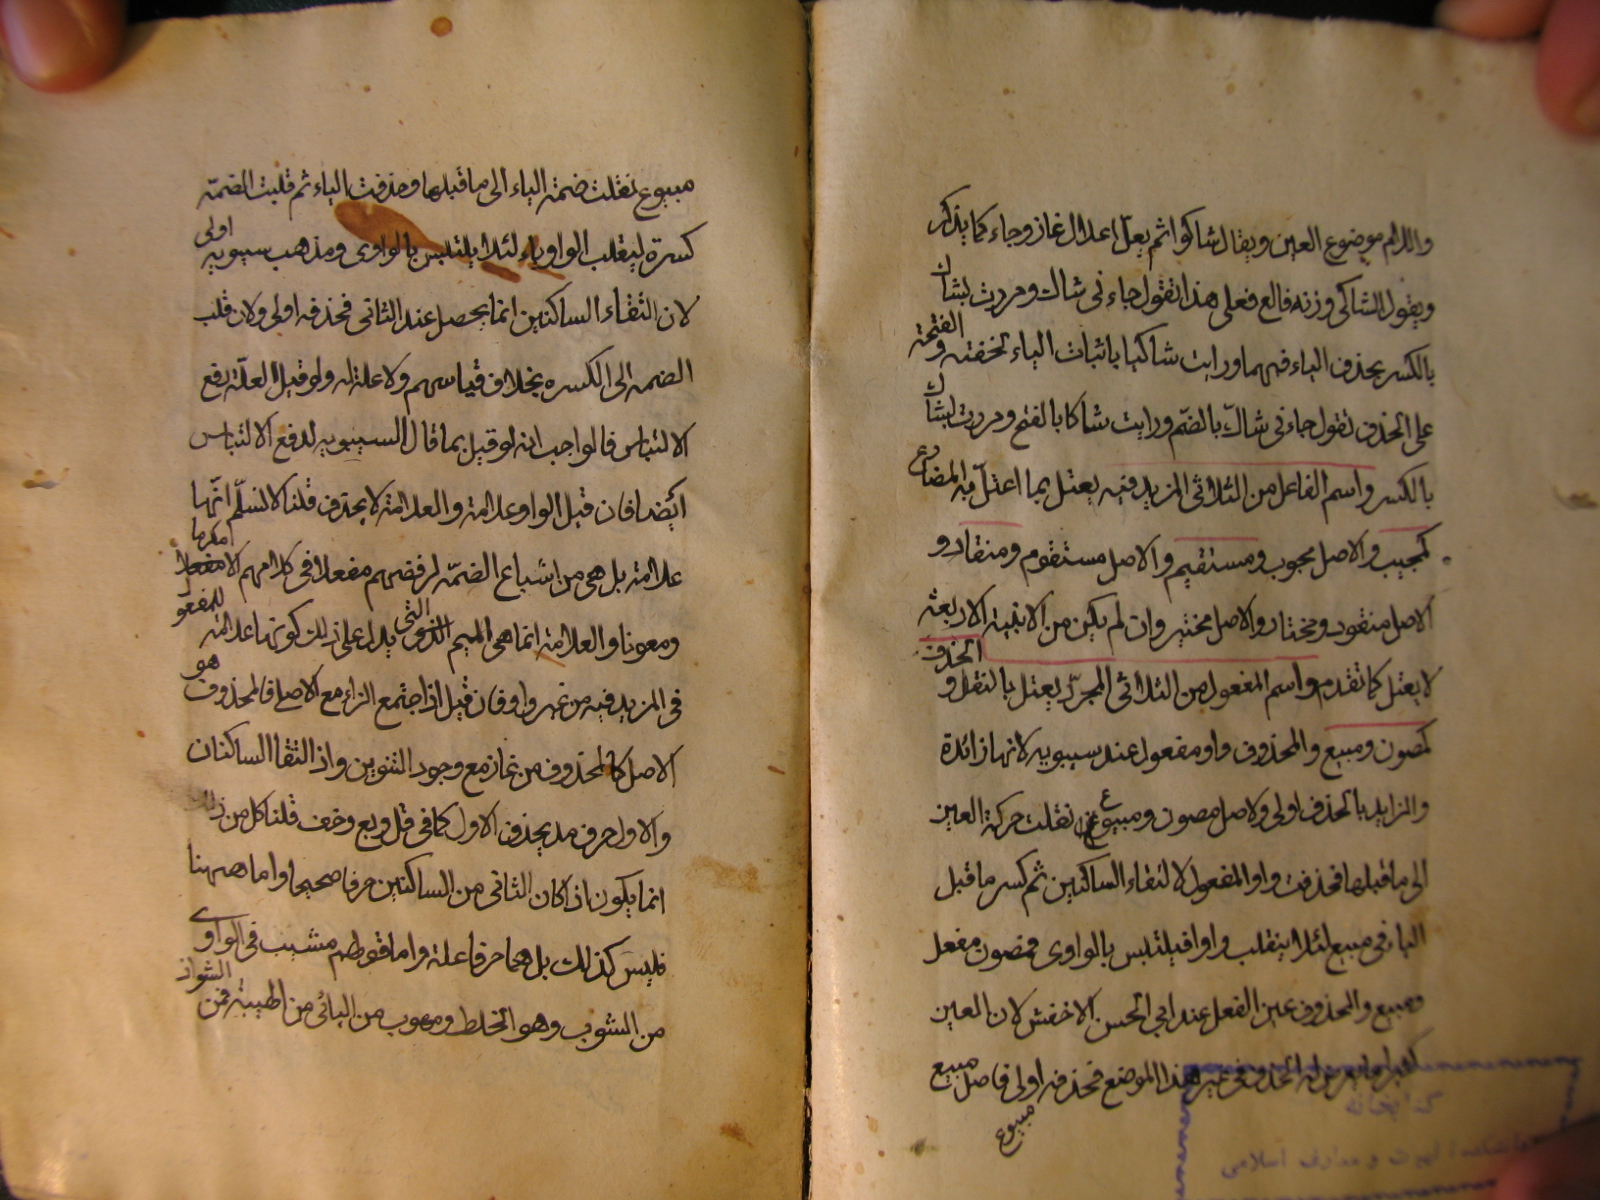 واللام موضع العين ويقال شاكوا ثم يعلّ اعلال غاز وجاء كما يذكر
ويقول الشاكي وزنه فالع فعلى هذا تقول جاءنى شاك ومررت بشاك
بالكسر بحذف الياء فيهما ورايت شاكيا باثبات الياء لخفته الفتحة و
على الحذف تقول جاءنى شاكّ بالضمّ ورايت شاكا بالفتح ومررت بشاك
بالكسر واسم الفاعل من الثلاثى المزيد فيه يعتل بما اعتلّ به المضارع
كمجيب والاصل مجوب ومستقيم والاصل مستقوم ومنقاد و
الاصل منقود ومختار والاصل مختير وان لم يكن من الابنية الاربعة
لا يعتل كما تقدم واسم المفعول من الثلاثى المجرّد يعتل بالنقل و الحذف
كمصون ومبيع والمحذوف واو مفعول عند سيبويه لانها زائدة
والزايد بالحذف اولى ولاصل مصون ومبيوع نقلت حركة العين
الى ما قبلها فحذفت واو المفعول لالتقاء الساكنين ثم كسر ما قبل
الياء فى مبيع لئلا ينقلب واوا فيلتبس بالواوى فمصون مفعل
ومبيع والمحذوف عين الفعل عند ابي الحسن الاخفش لان العين
كثيرا ما يعرض له الحذف فى غير هذا الموضع فحذفه اولى فاصل مبيع
مبيوع
كتابخانه
دانشكده الهيات و معارف اسلامى
مبيوع نقلت ضمة الياء الى ما قبلها وحذفت الياء ثم قلبت الضمّة
كسرة لينقلب الواو ياء لئلا يلتبس بالواوى ومذهب سيبويه اولى
لان التقاء الساكنين انما يحصل عند الثانى فحذفه اولى ولان قلب
الضمه الى الكسره بخلاف قياسهم ولا علة له ولو قيل العلّة رفع
الالتباس فالواجب انه لو قيل بما قال السيبويه لدفع الالتباس
ايضا فان قيل الواو علامة والعلامة لا يحذف قلنا لا نسلّم انّها
علامة بل هى من اشباع الضمّه لرفضهم مفعلا فى كلامهم الا مكرما
ومعونا والعلامة انما هى الميم يدل على ذلك كونها علامة للمفعو
فى المزيد فيه من غير واو فان قيل اذا اجتمع الزاء مع الاصل فالمحذوف هو
الاصل كالمحذوف من غاز مع وجود التنوين واذ التقا الساكنان
والاول حرف مد يحذف الاول كما فى قل وبع وخف قلنا كل من ذلك
انما يكون اذا كان الثانى من الساكنين حرفا صحيحا واما ههنا
فليس كذلك بل هما حرفا علة واما قولهم مشيب فى الواوى
من الشوب وهو الخلط ومهوب من اليائى من الهيبة فمن الشواذ